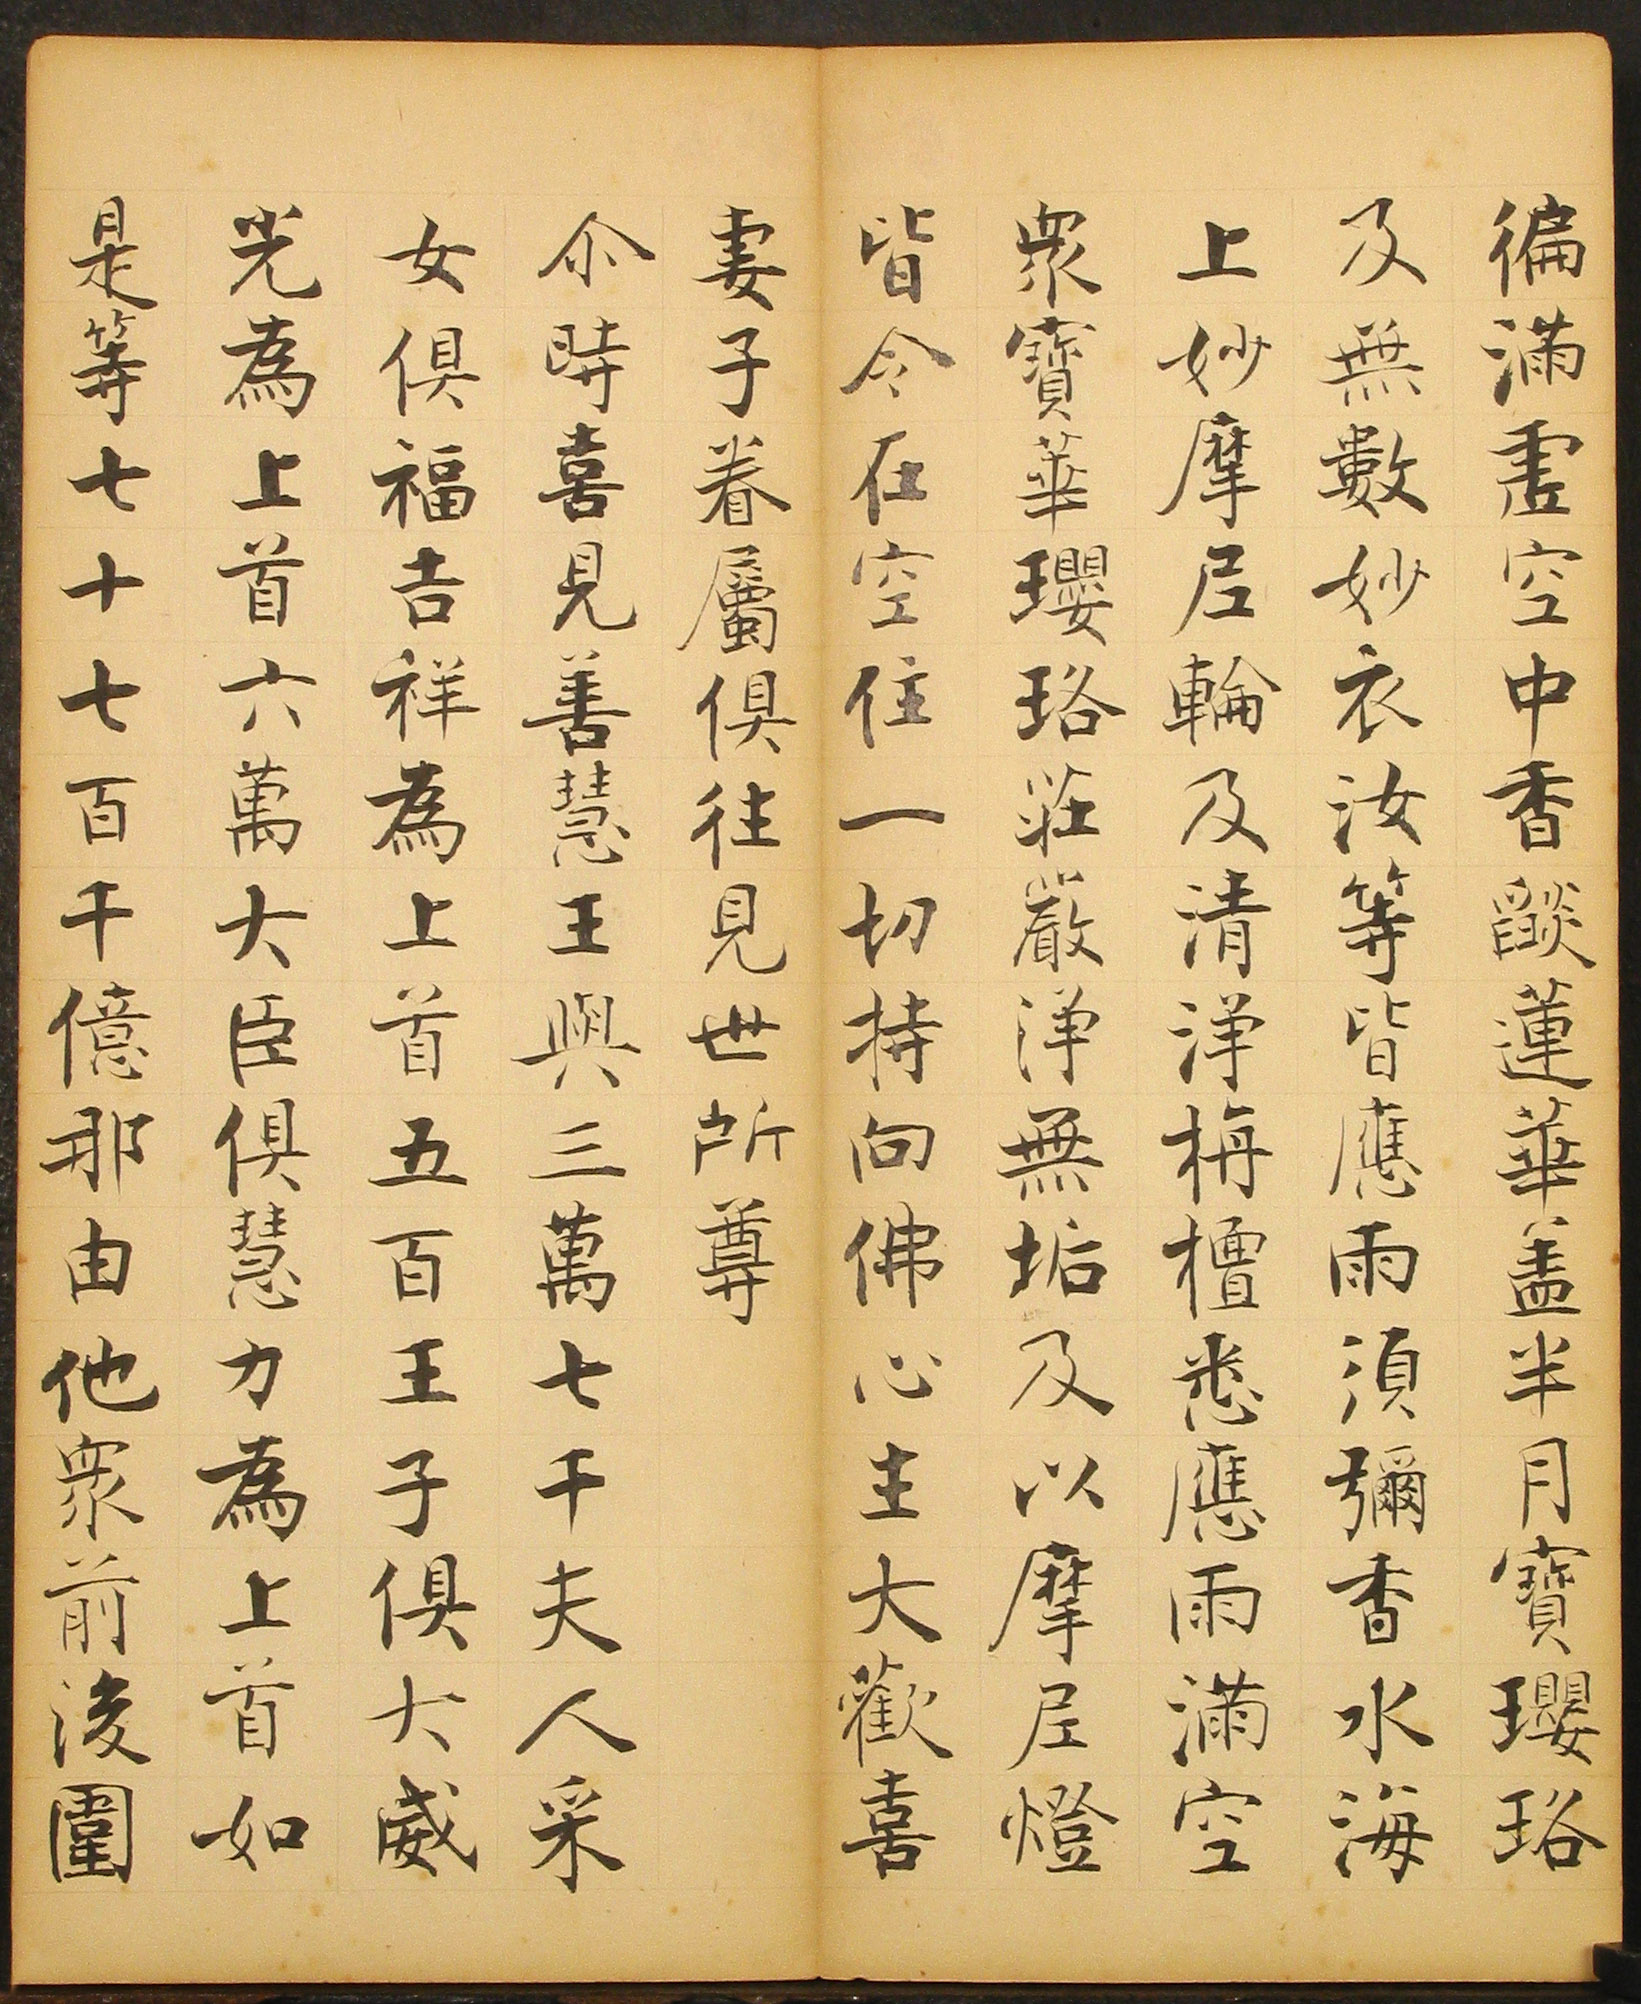 徧滿虛空中香燄蓮華蓋半月寶瓔珞
及無數妙衣汝等皆應雨須彌香水海
上妙摩尼輪及清淨栴檀悉應雨滿空
眾寶華瓔珞莊嚴淨無垢及以摩尼燈
皆令在空住一切持向佛心生大歡喜
妻子眷屬俱往見世所尊
尒時喜見善慧王與三萬七千夫人采
女俱福吉祥為上首五百王子俱大威
光為上首六萬大臣俱慧力為上首如
是等七十七百千億那由他眾前後圍